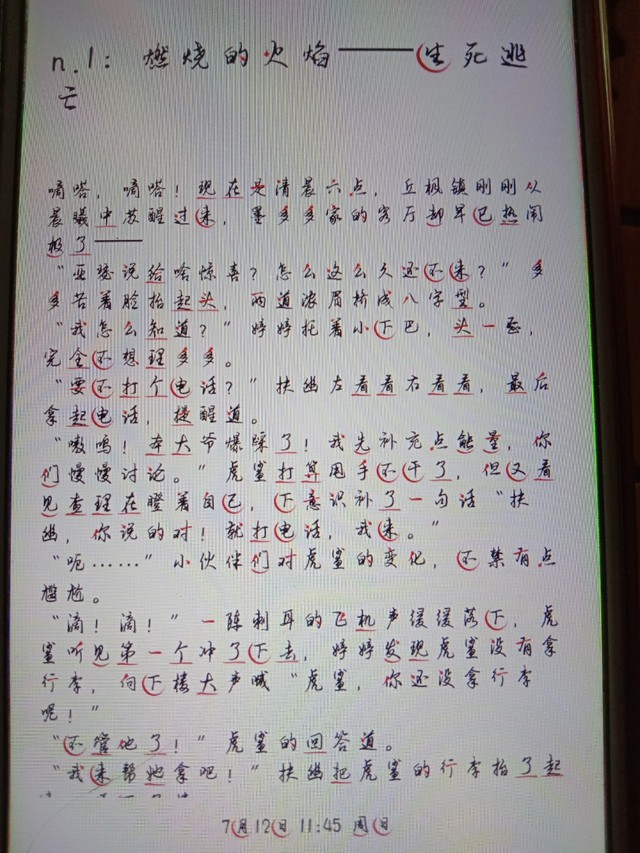 n.1：燃烧的火焰———生死逃
亡
嘀嗒，嘀嗒！现在是清晨六点，丘枫镇刚刚从
晨曦中苏醒过来，墨多多家的客厅却早已热闹
极了——
“亚瑟说给啥惊喜？怎么这么久还不来？”多
多苦着脸抬起头，两道浓眉挤成八字型。
“我怎么知道？”婷婷托着小下巴，头一歪，
完全不想理多多。
“要不打个电话？”扶幽左看看右看看，最后
拿起电话，提醒道。
“嗷呜！本大爷爆踩了！我先补充点能量，你
们慢慢讨论。”虎鲨打算甩手不干了，但又看
见查理在瞪着自己，下意识补了一句话“扶
幽，你说的对！就打电话，我来。”
“呃……”小伙伴们对虎鲨的变化，不禁有点
尴尬。
“滴！滴！”一阵刺耳的飞机声缓缓落下，虎
鲨听见第一个冲了下去，婷婷发现虎鲨没有拿
行李，向下楼大声喊“虎鲨，你还没拿行李
呢！”
“不管他了！”虎鲨的回答道。
“我来帮她拿吧！”扶幽把虎鲨的行李抬了起
7月12日 11:45 周日